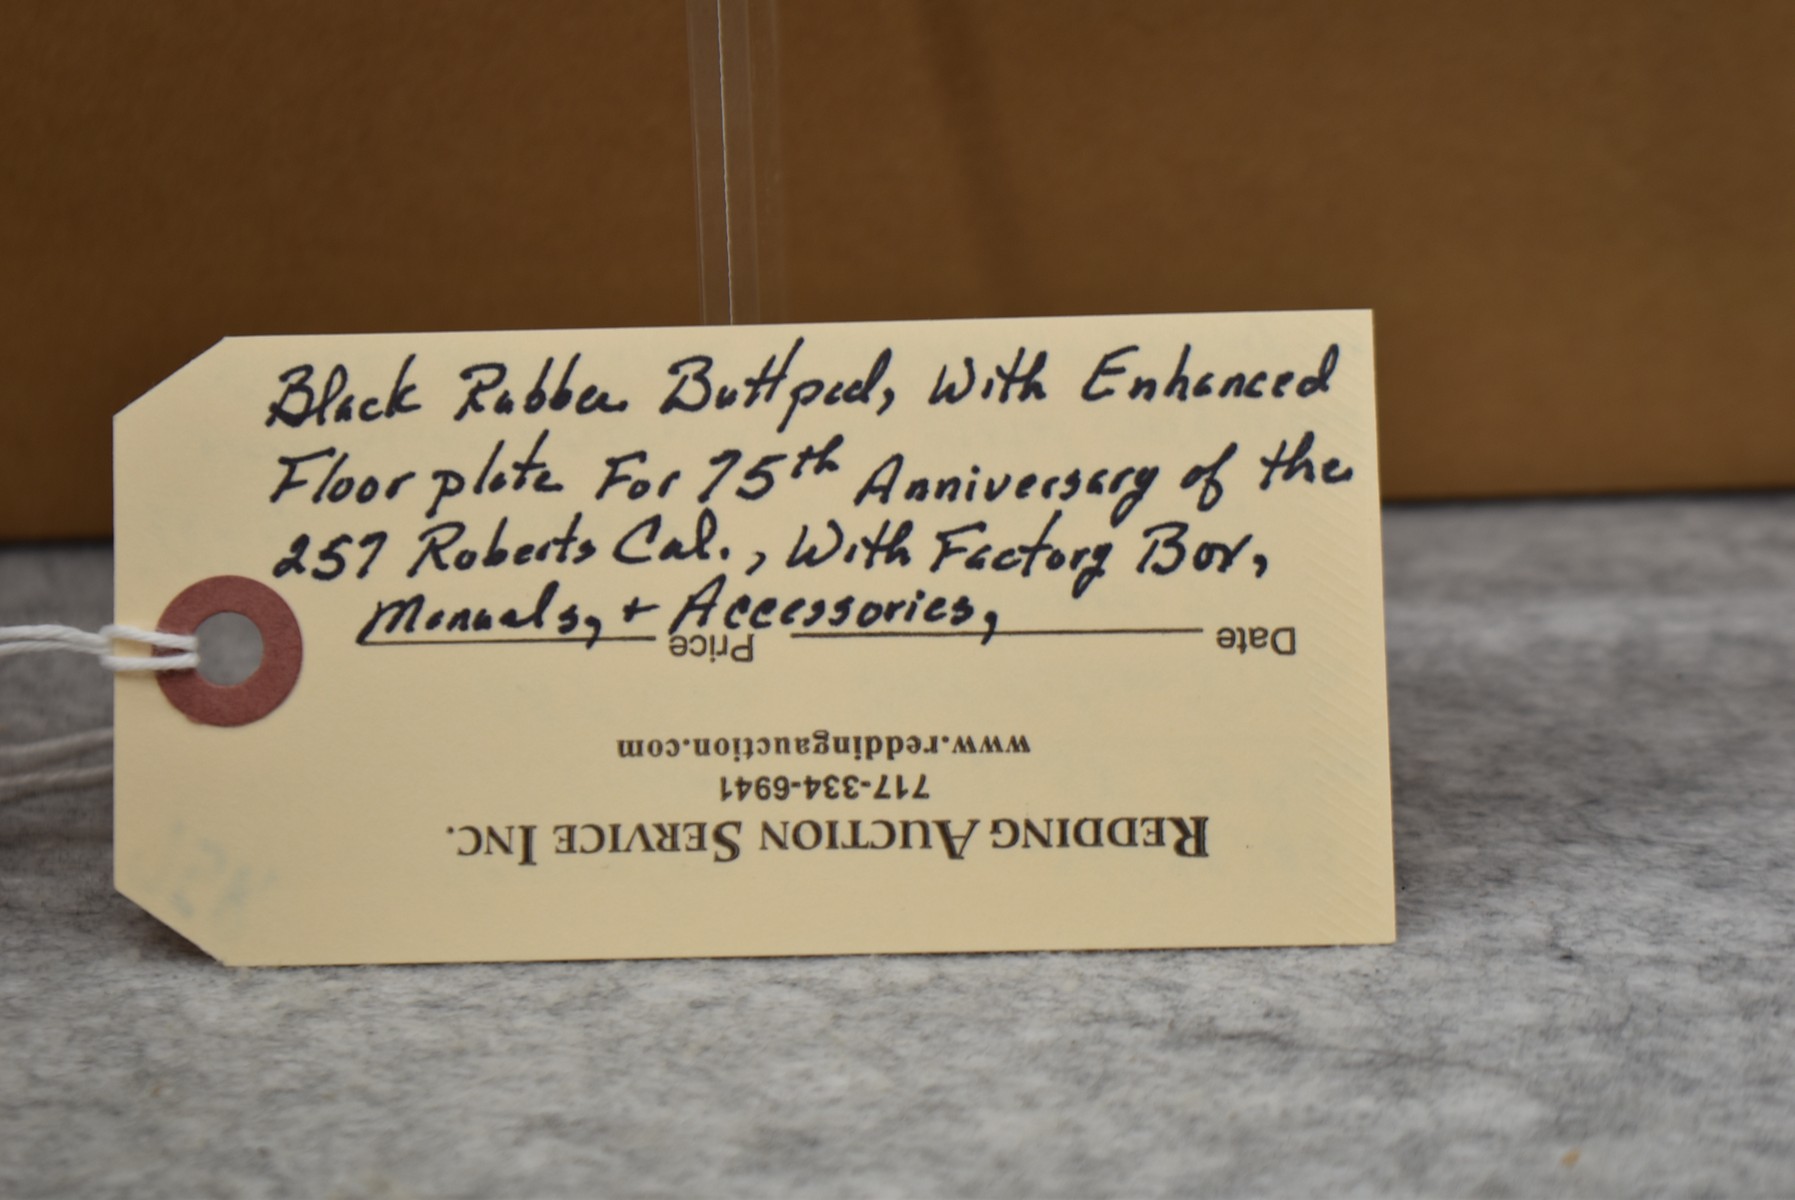 Black Rubber Buttpad, With Enhanced
Floor plate For 75th Anniversary of the
257 Roberts Cal., With Factory Box,
Manuals, + Accessories,
Date Price
www.reddingauction.com
717-334-6941
REDDING AUCTION SERVICE INC.